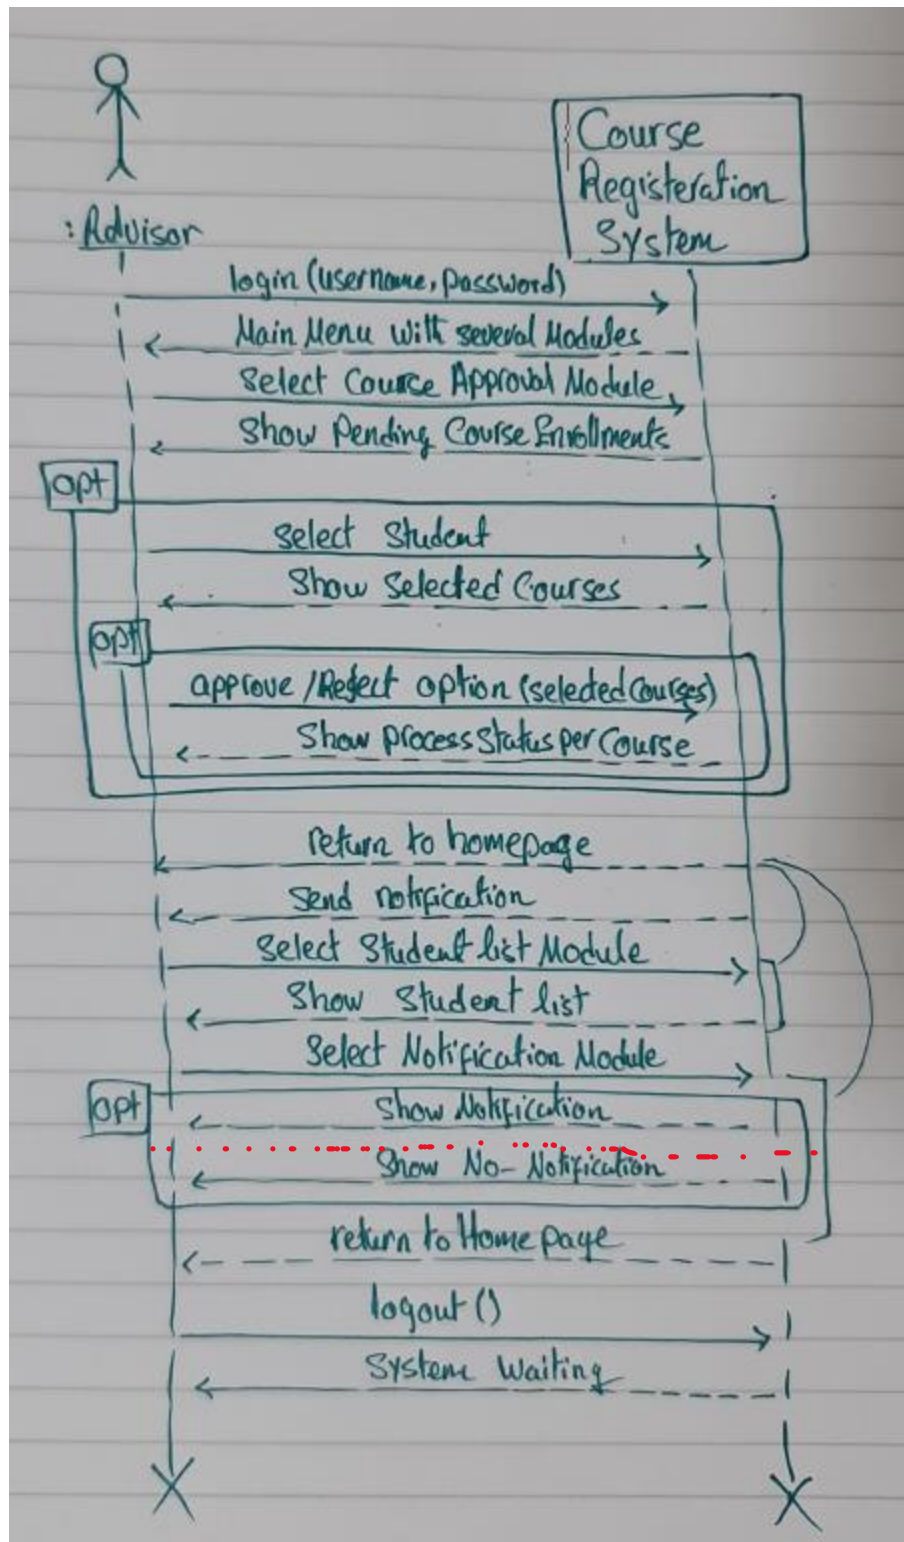 Course
Registeration
System
: Advisor
login (username, password)
Main Menu with several Modules
Select Course Approval Module
Show Pending Course Enrollments
opt
Select Student
Show Selected Courses
opt
approve / Reject option (selected Courses)
Show process Status per Course
return to homepage
Send notification
Select Student list Module
Show Student list
Select Notification Module
opt
Show Notification
Show No-Notification
return to Home page
logout ()
System Waiting